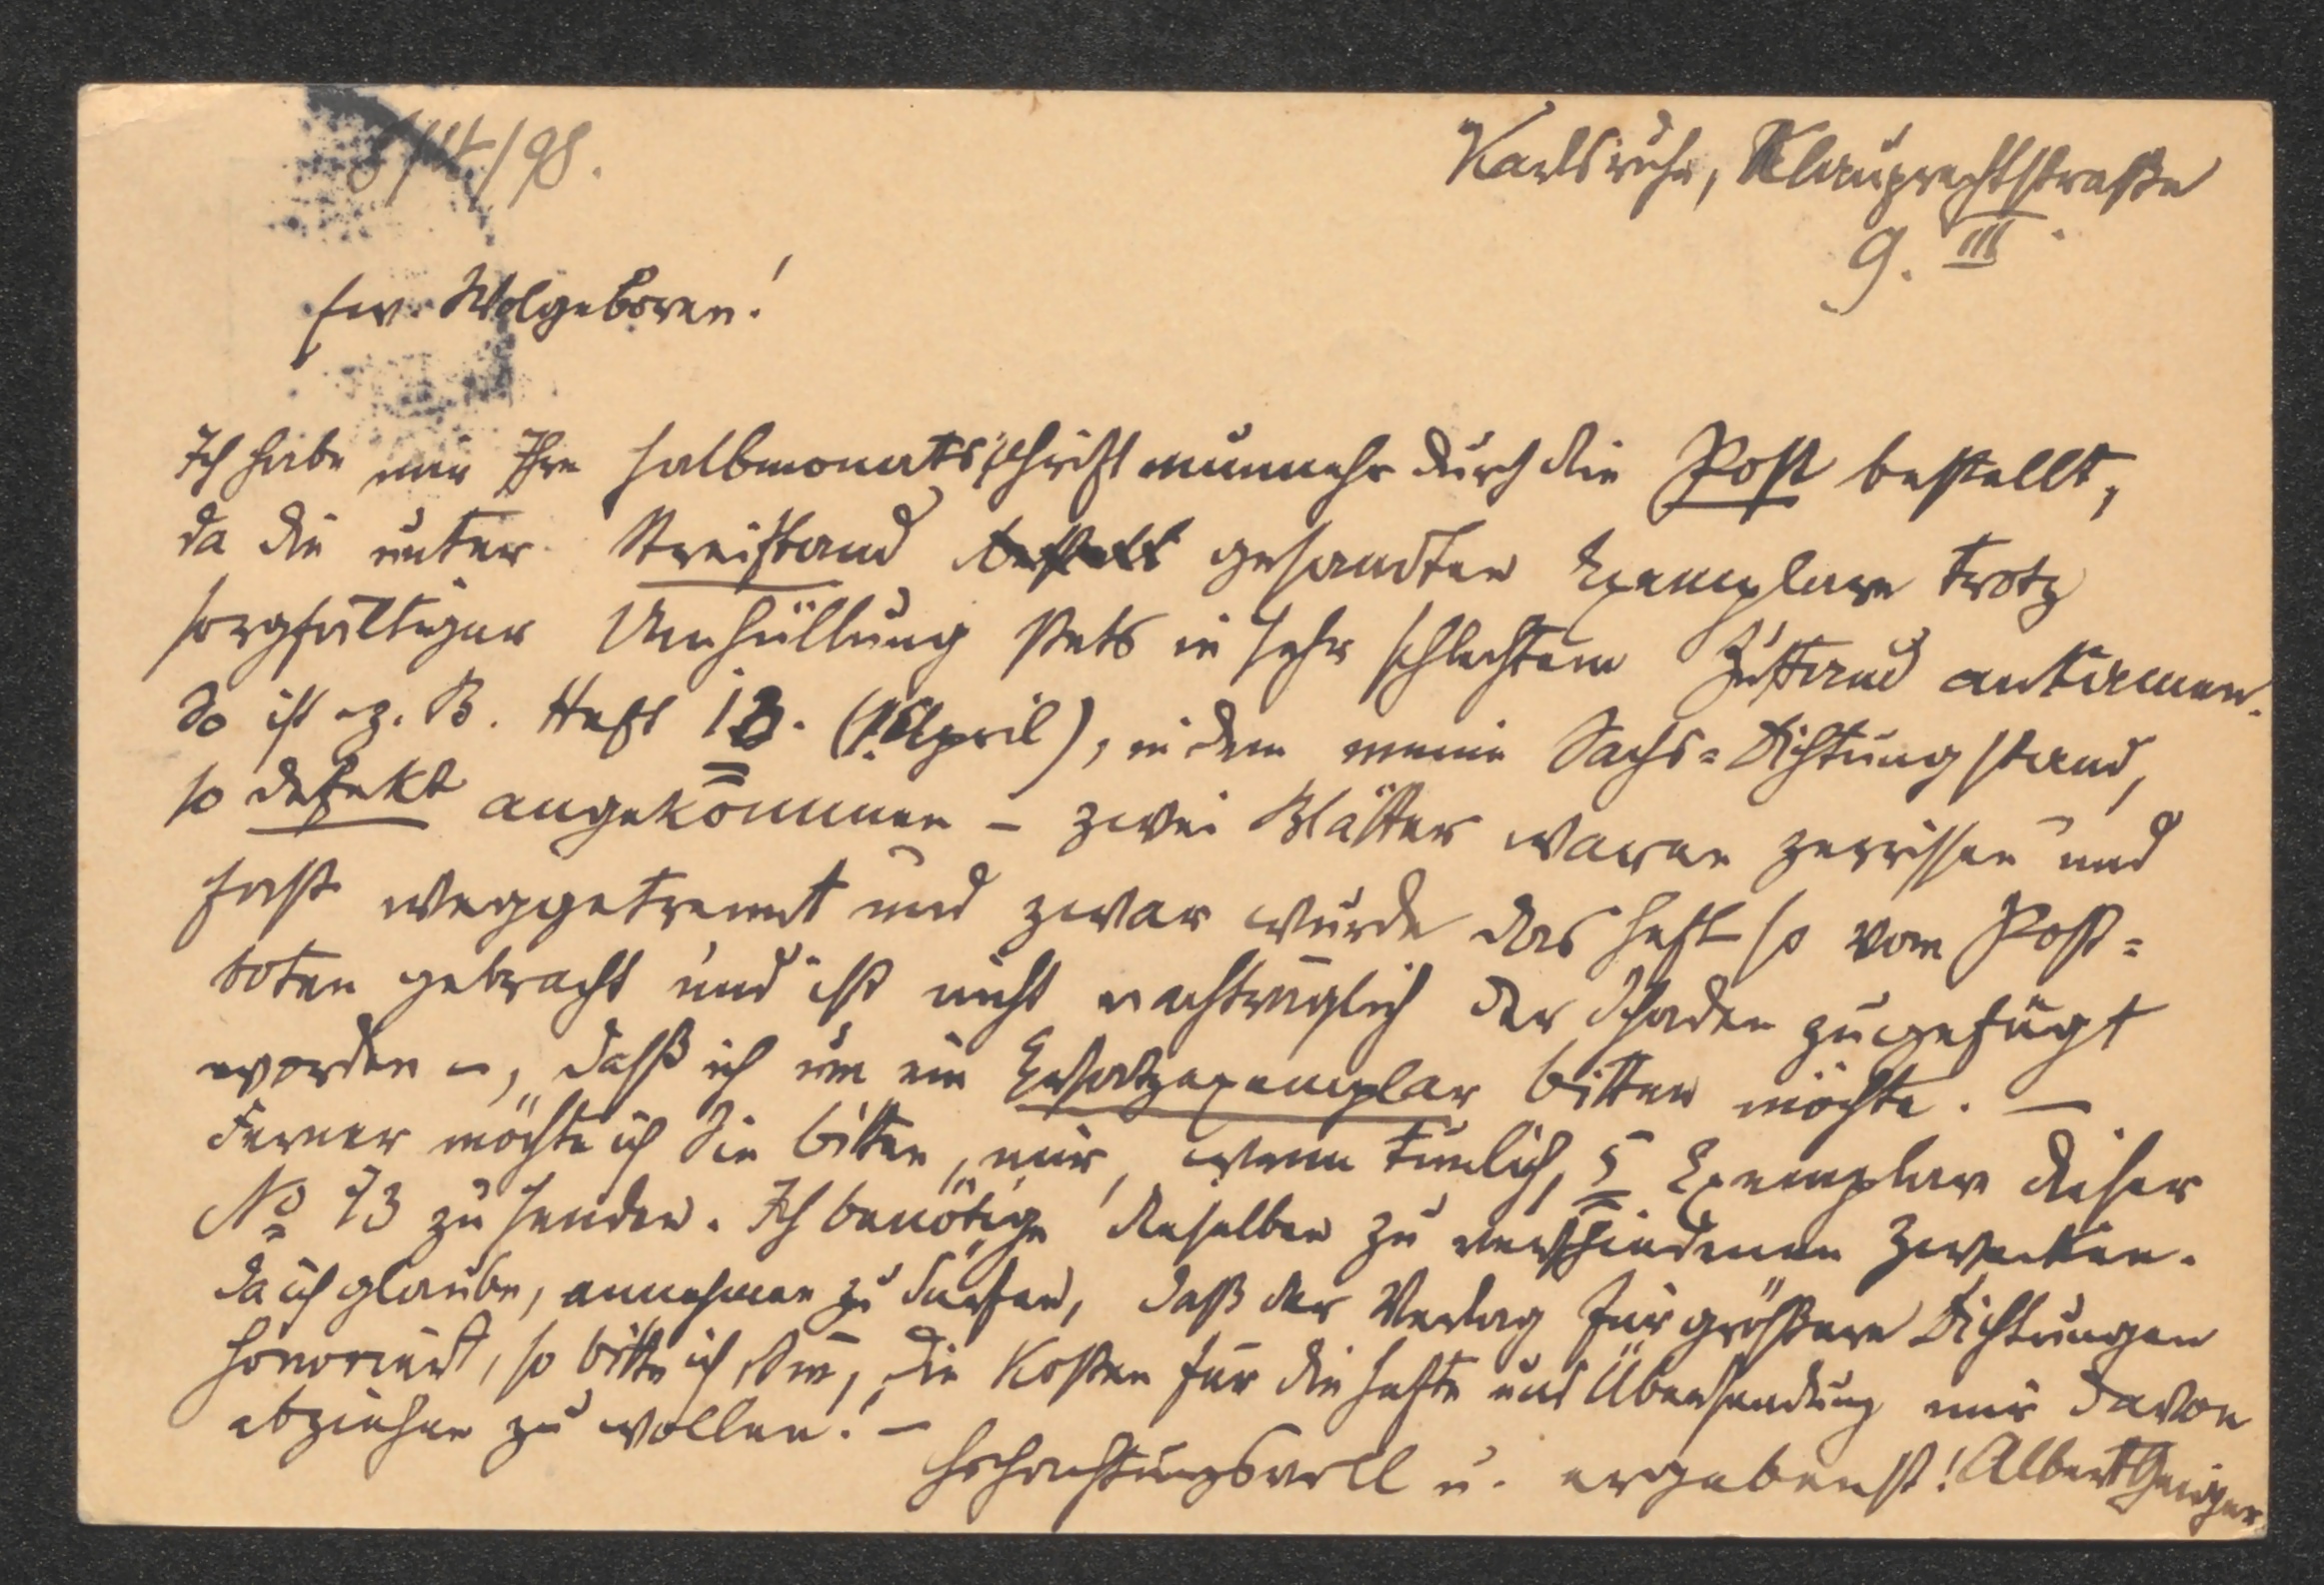 8/IV/98.
Karlsruhe, Klauprechtstraße
9. III.
Ew. Wolgeboren!
Ich habe nun Ihre Halbmonatsschrift nunmehr durch die Post bestellt,
da die unter Streifband gesandten Exemplare trotz
sorgfältiger Umhüllung stets in sehr schlechtem Zustand ankamen.
So ist z. B. Heft 13. (1. April), in dem meine Sachs-Dichtung stand,
so defekt angekommen – zwei Blätter waren zerrissen und
fast weggetrennt und zwar wurde das Heft so vom Post-
boten gebracht und ist nicht nachträglich der Schaden zugefügt
worden –, daß ich um ein Ersatzexemplar bitten möchte. –
Ferner möchte ich Sie bitten, mir, wenn tunlich, 5 Exemplare dieser
No 13 zu senden. Ich benötige dieselben zu verschiedenen Zwecken.
Da ich glaube, annehmen zu dürfen, daß der Verlag für größere Dichtungen
honoriert, so bitte ich Sie, die Kosten für die Hefte und Übersendung mir davon
abziehen zu wollen! –
Hochachtungsvoll u. ergebenst! Albert Geiger